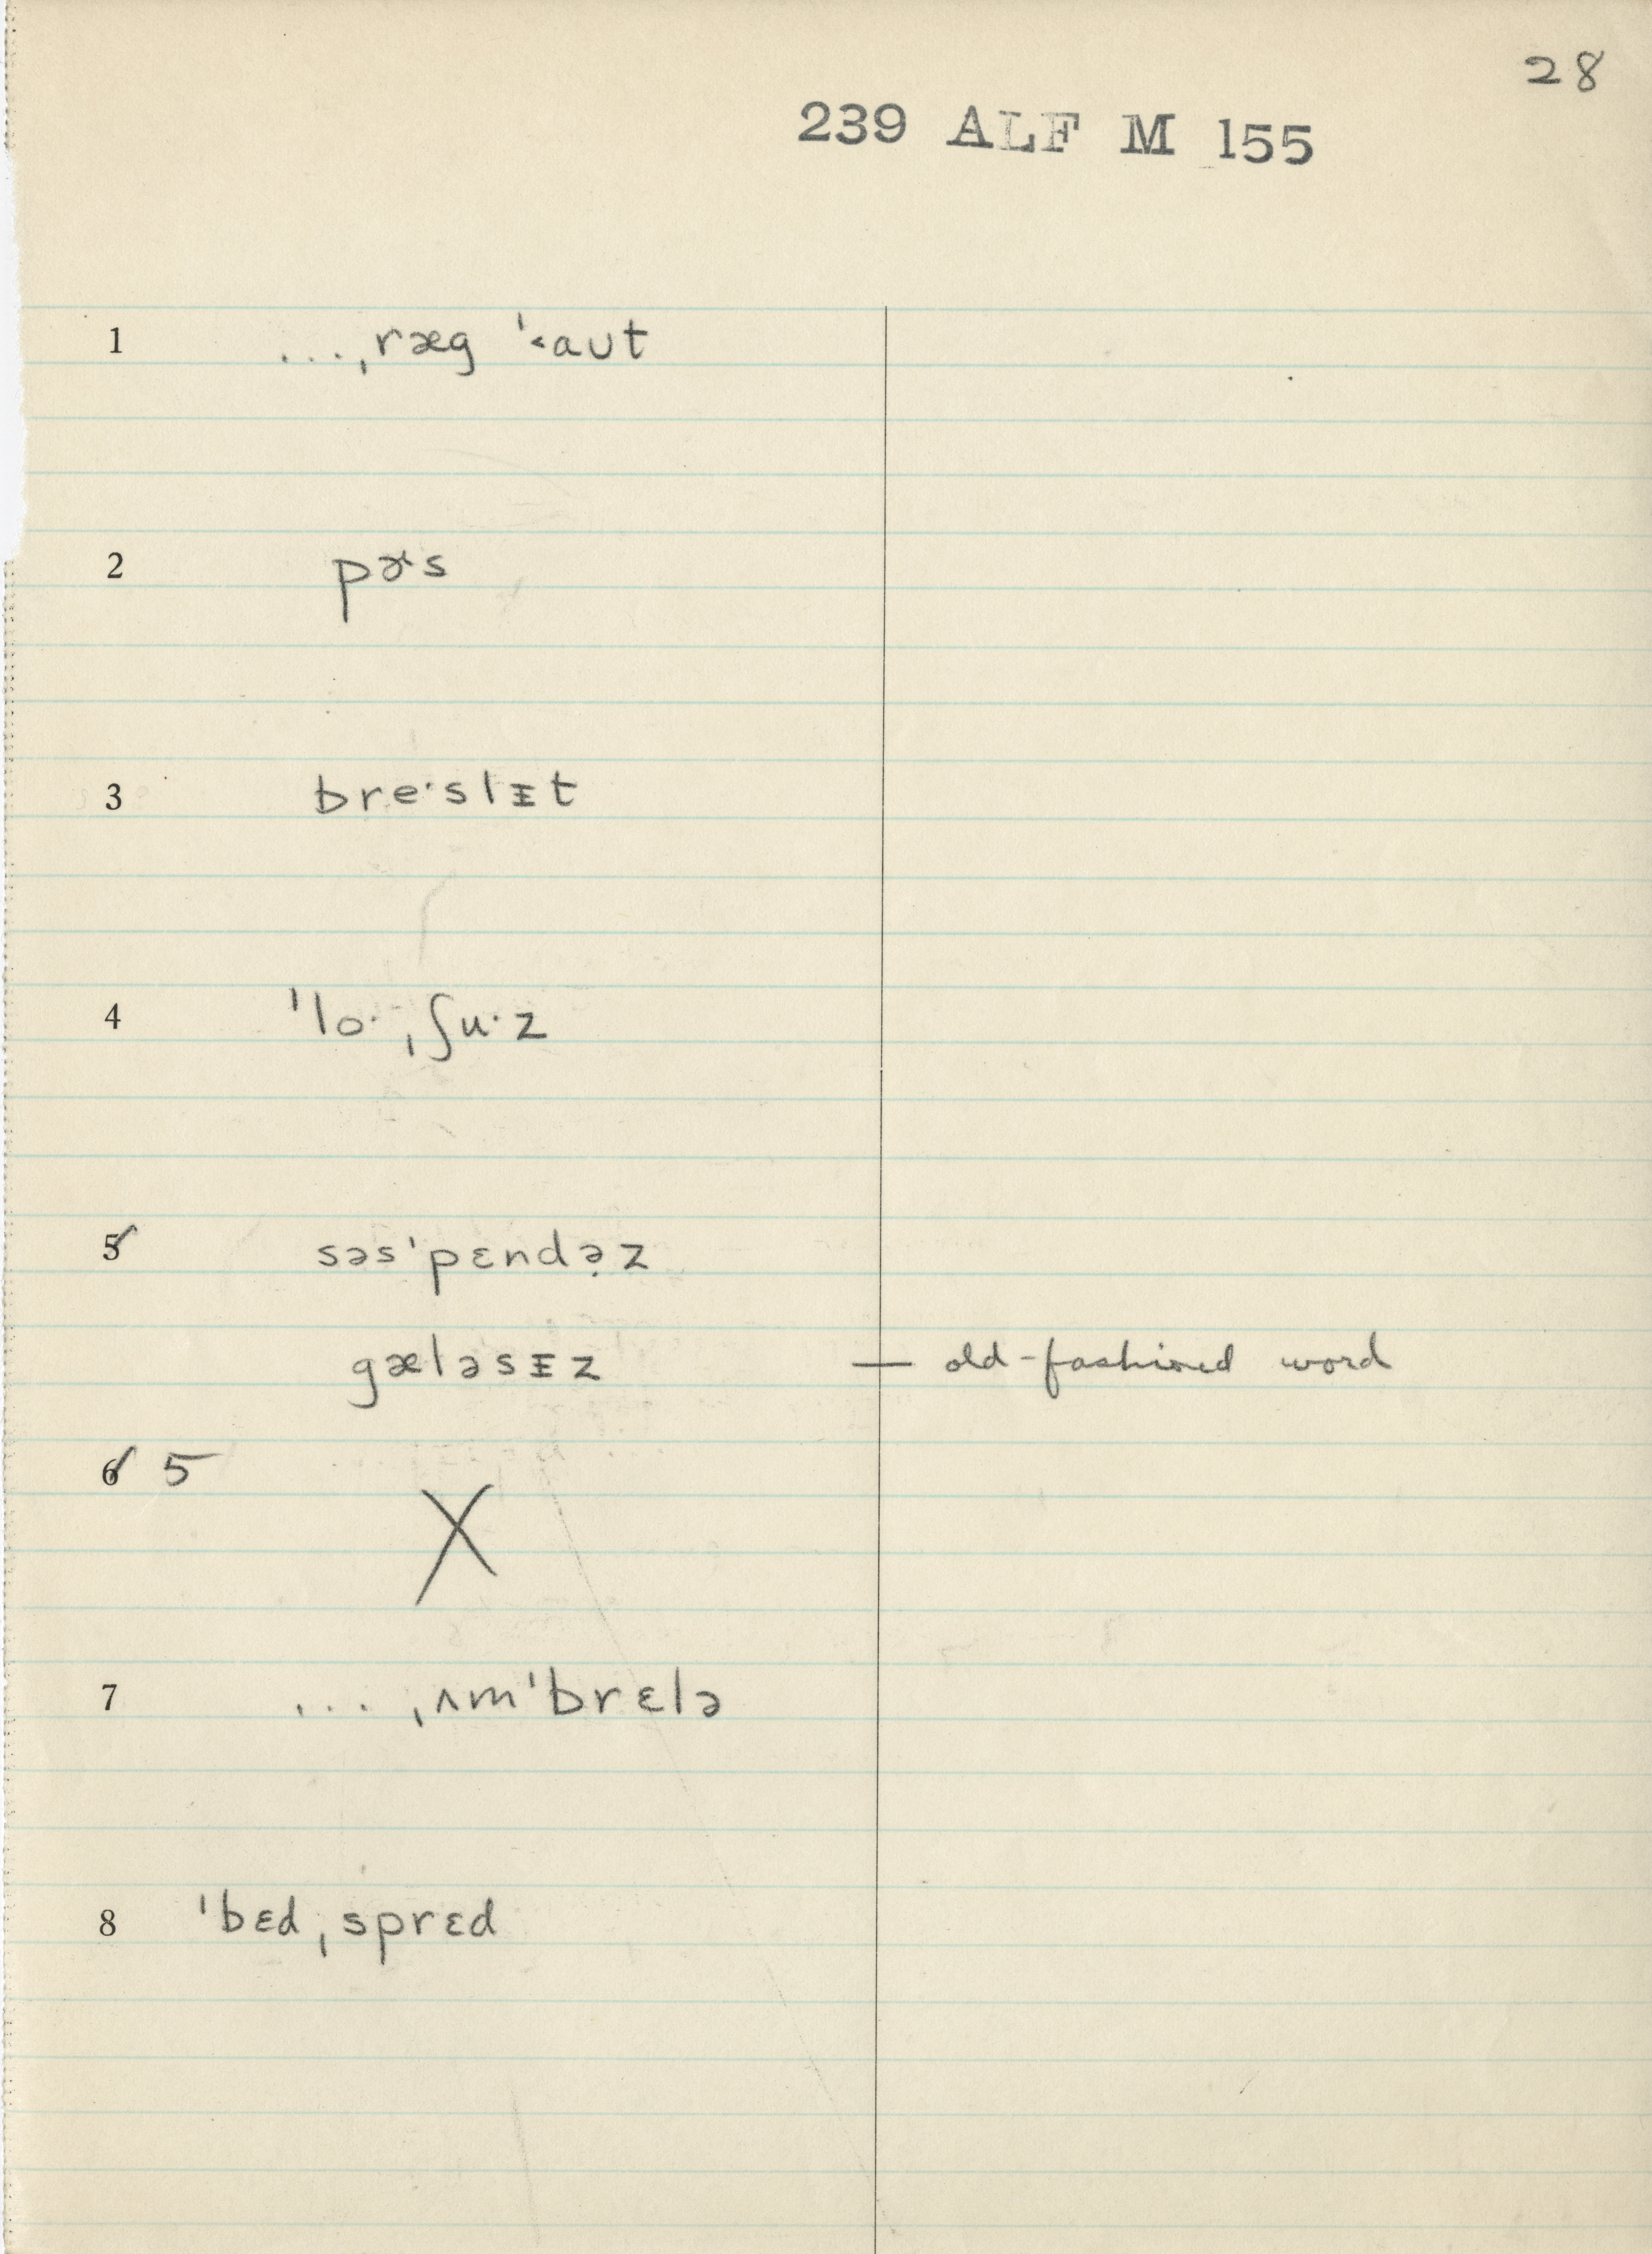 28
239 ALF M 155
1 ...ˌræg ˈ˂aʊt
2 pɚs
3 breˑslᵻt
4 ˈloˑˌʃuˑz
5 səsˈpɛndə̣z
gæləsᵻz — old-fashioned word
6 5
X
7 ... ˌʌmˈbrɛlə
8 ˈbɛdˌsprɛd